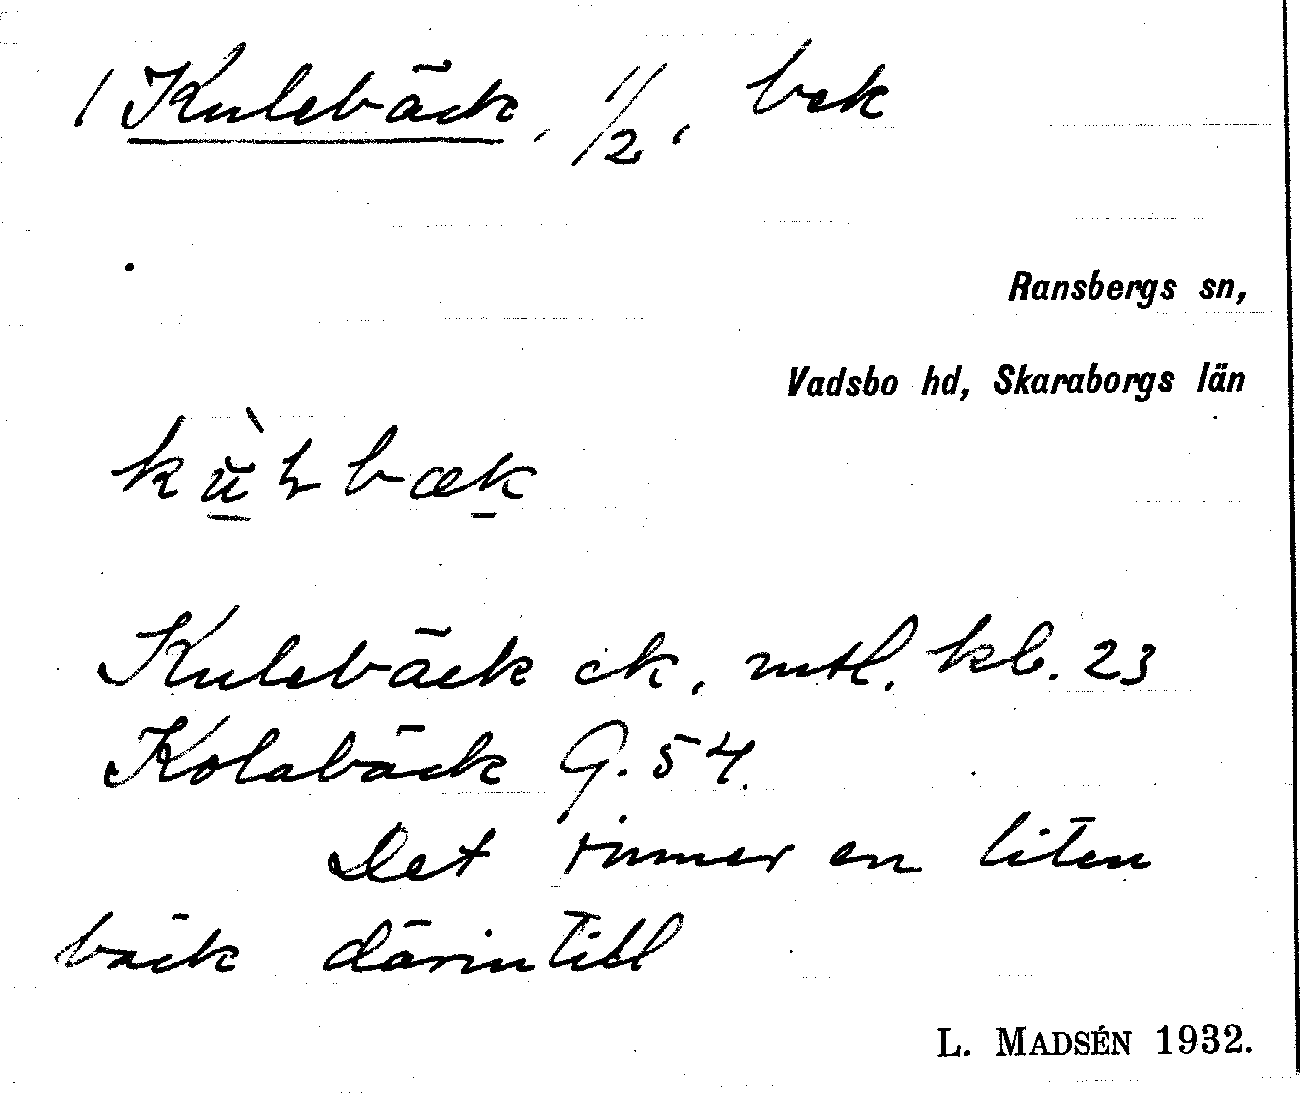 1 Kulebäck, 1/2, bek
Ransbergs sn,
Vadsbo hd, Skaraborgs län
Kulebäck ck, mtl. kb. 23
Kolabäck G. 54.
Det rinner en liten
bäck därintill
L. MADSÉN 1932.